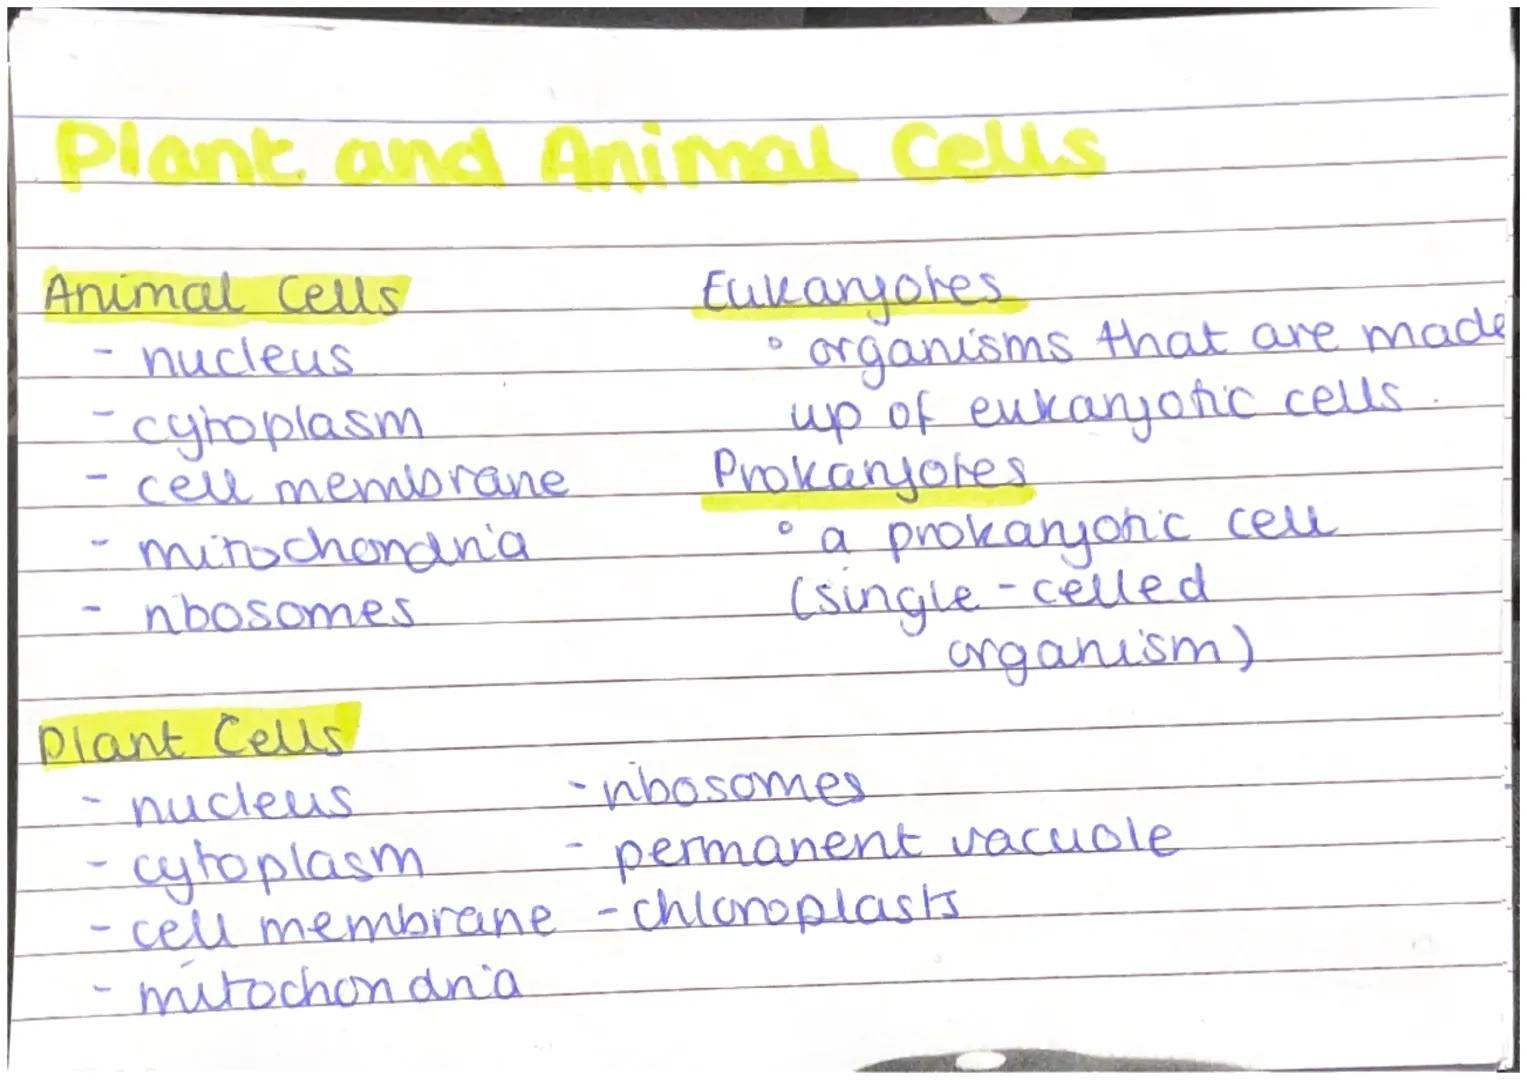 Plant and Animal Cells
Animal Cells
- nucleus
- cytoplasm
- cell membrane
- mitochondria
- ribosomes
Eukaryotes
° organisms that are made
up of eukaryotic cells.
Prokaryotes
° a prokaryotic cell
(single-celled
organism)
Plant Cells
- nucleus
- cytoplasm
- cell membrane
- mitochondria
- ribosomes
- permanent vacuole
- chloroplasts